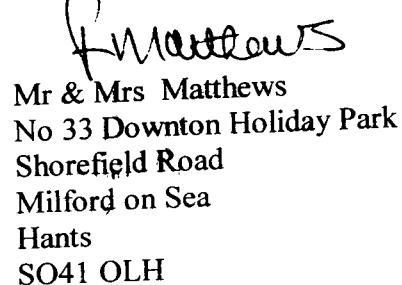 Matthews
Mr & Mrs Matthews
No 33 Downton Holiday Park
Shorefield Road
Milford on Sea
Hants
SO41 OLH